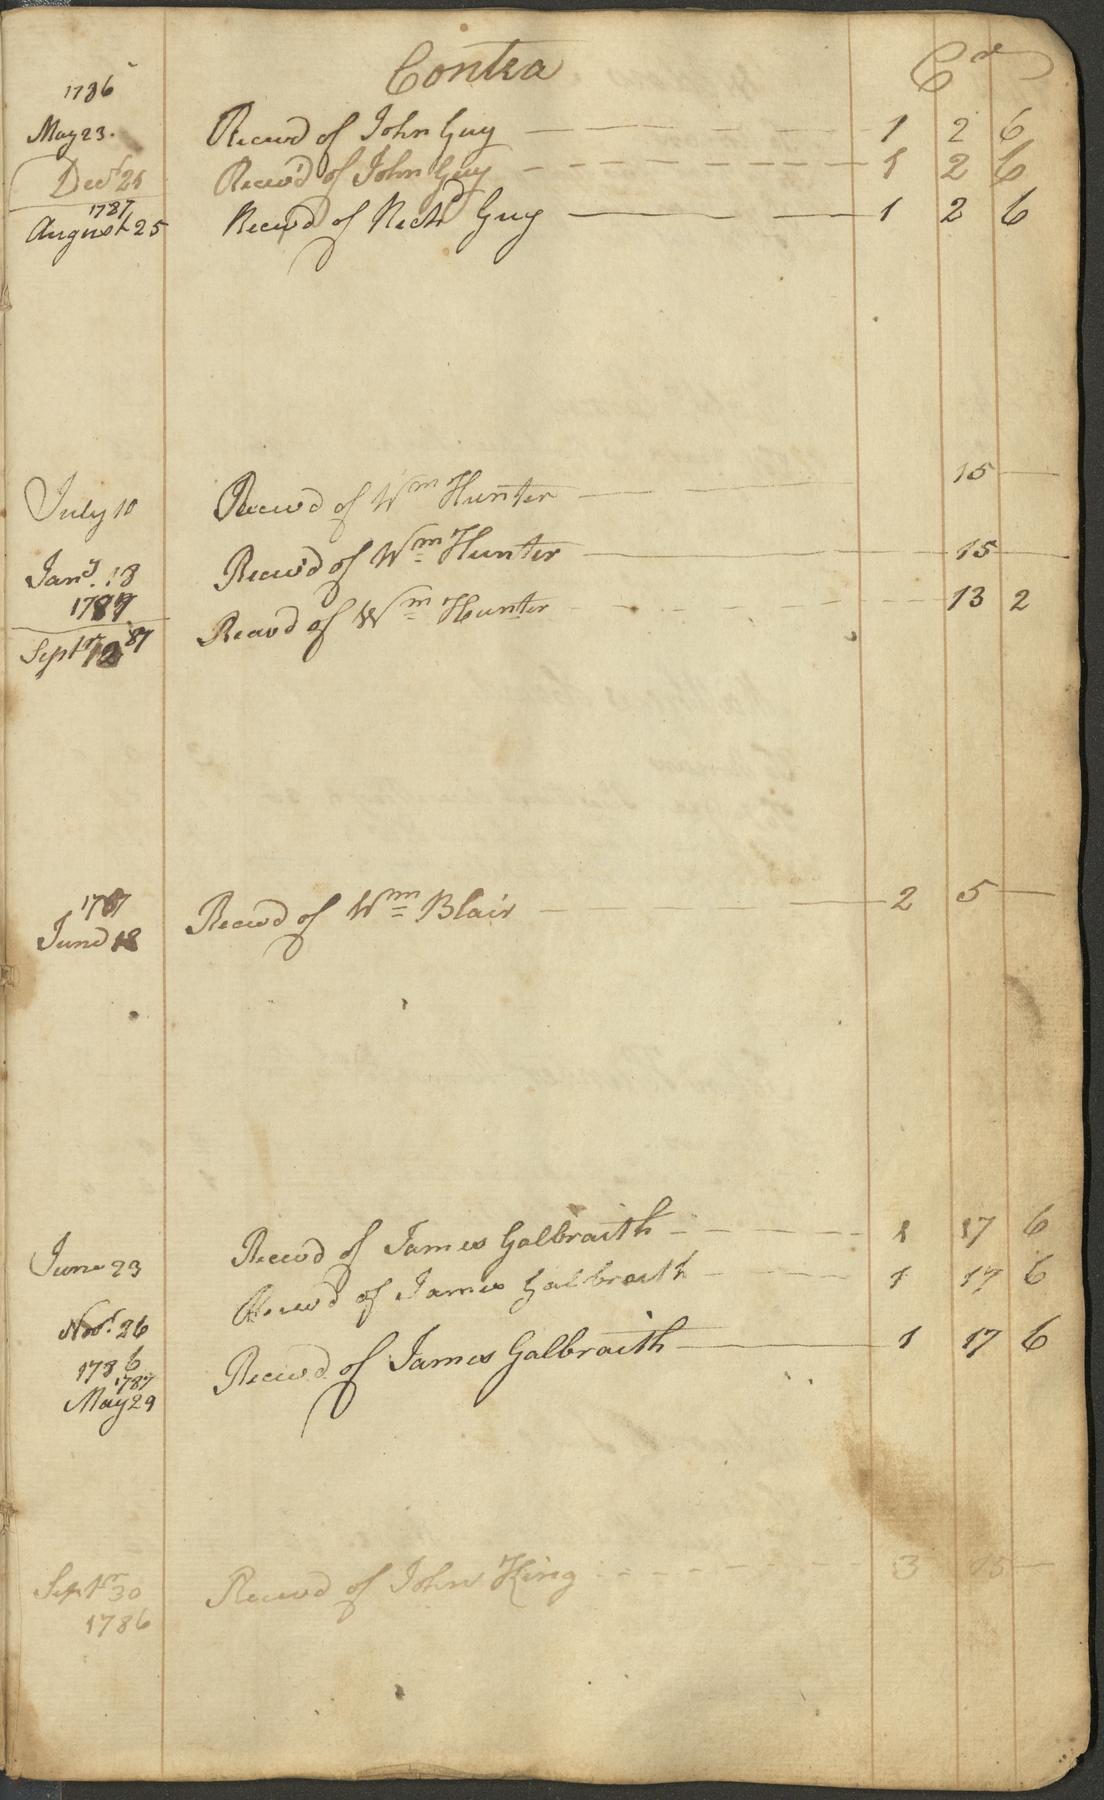 Contra Cr
1786
May 23. Recevd of John Guy 1 2 6
Decr 21 Recevd of John Guy 1 2 6
1787
August 25 Recevd of Richd Guy 1 2 6
July 10 Recevd of Wm Hunter 15 —
Jany. 18 Recevd of Wm Hunter 15 —
1787
Septr 12 87 Recevd of Wm Hunter 13 2
1787
June 18 Recevd of Wm Blair 2 5 —
June 23 Recevd of James Galbraith 1 17 6
Novr. 26 Recevd of James Galbraith 1 17 6
1786
1787
May 29 Recevd of James Galbraith 1 17 6
Septr 30 Recevd of John King 3 15 —
1786